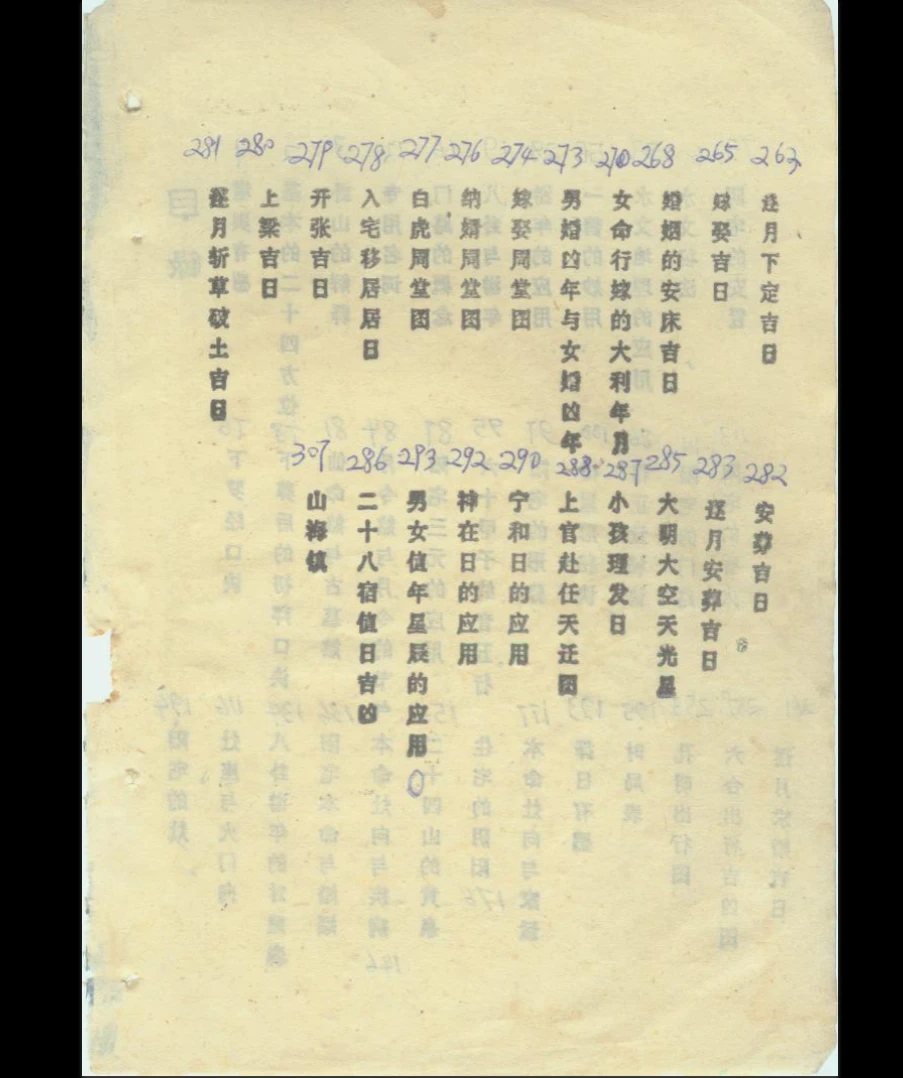 263
逐月下定吉日
265
嫁娶吉日
268
婚姻的安床吉日
270
女命行嫁的大利年月
273
男婚凶年与女婚凶年
274
嫁娶周堂图
276
纳婿周堂图
277
白虎周堂图
278
入宅移居居日
279
开张吉日
280
上梁吉日
281
逐月斩草破土吉日
282
安葬吉日
283
逐月安葬吉日
285
大明大空天光星
287
小孩理发日
288
上官赴任天迁图
290
宁和日的应用
292
神在日的应用
293
男女值年星辰的应用
286
二十八宿值日吉凶
307
山海镇